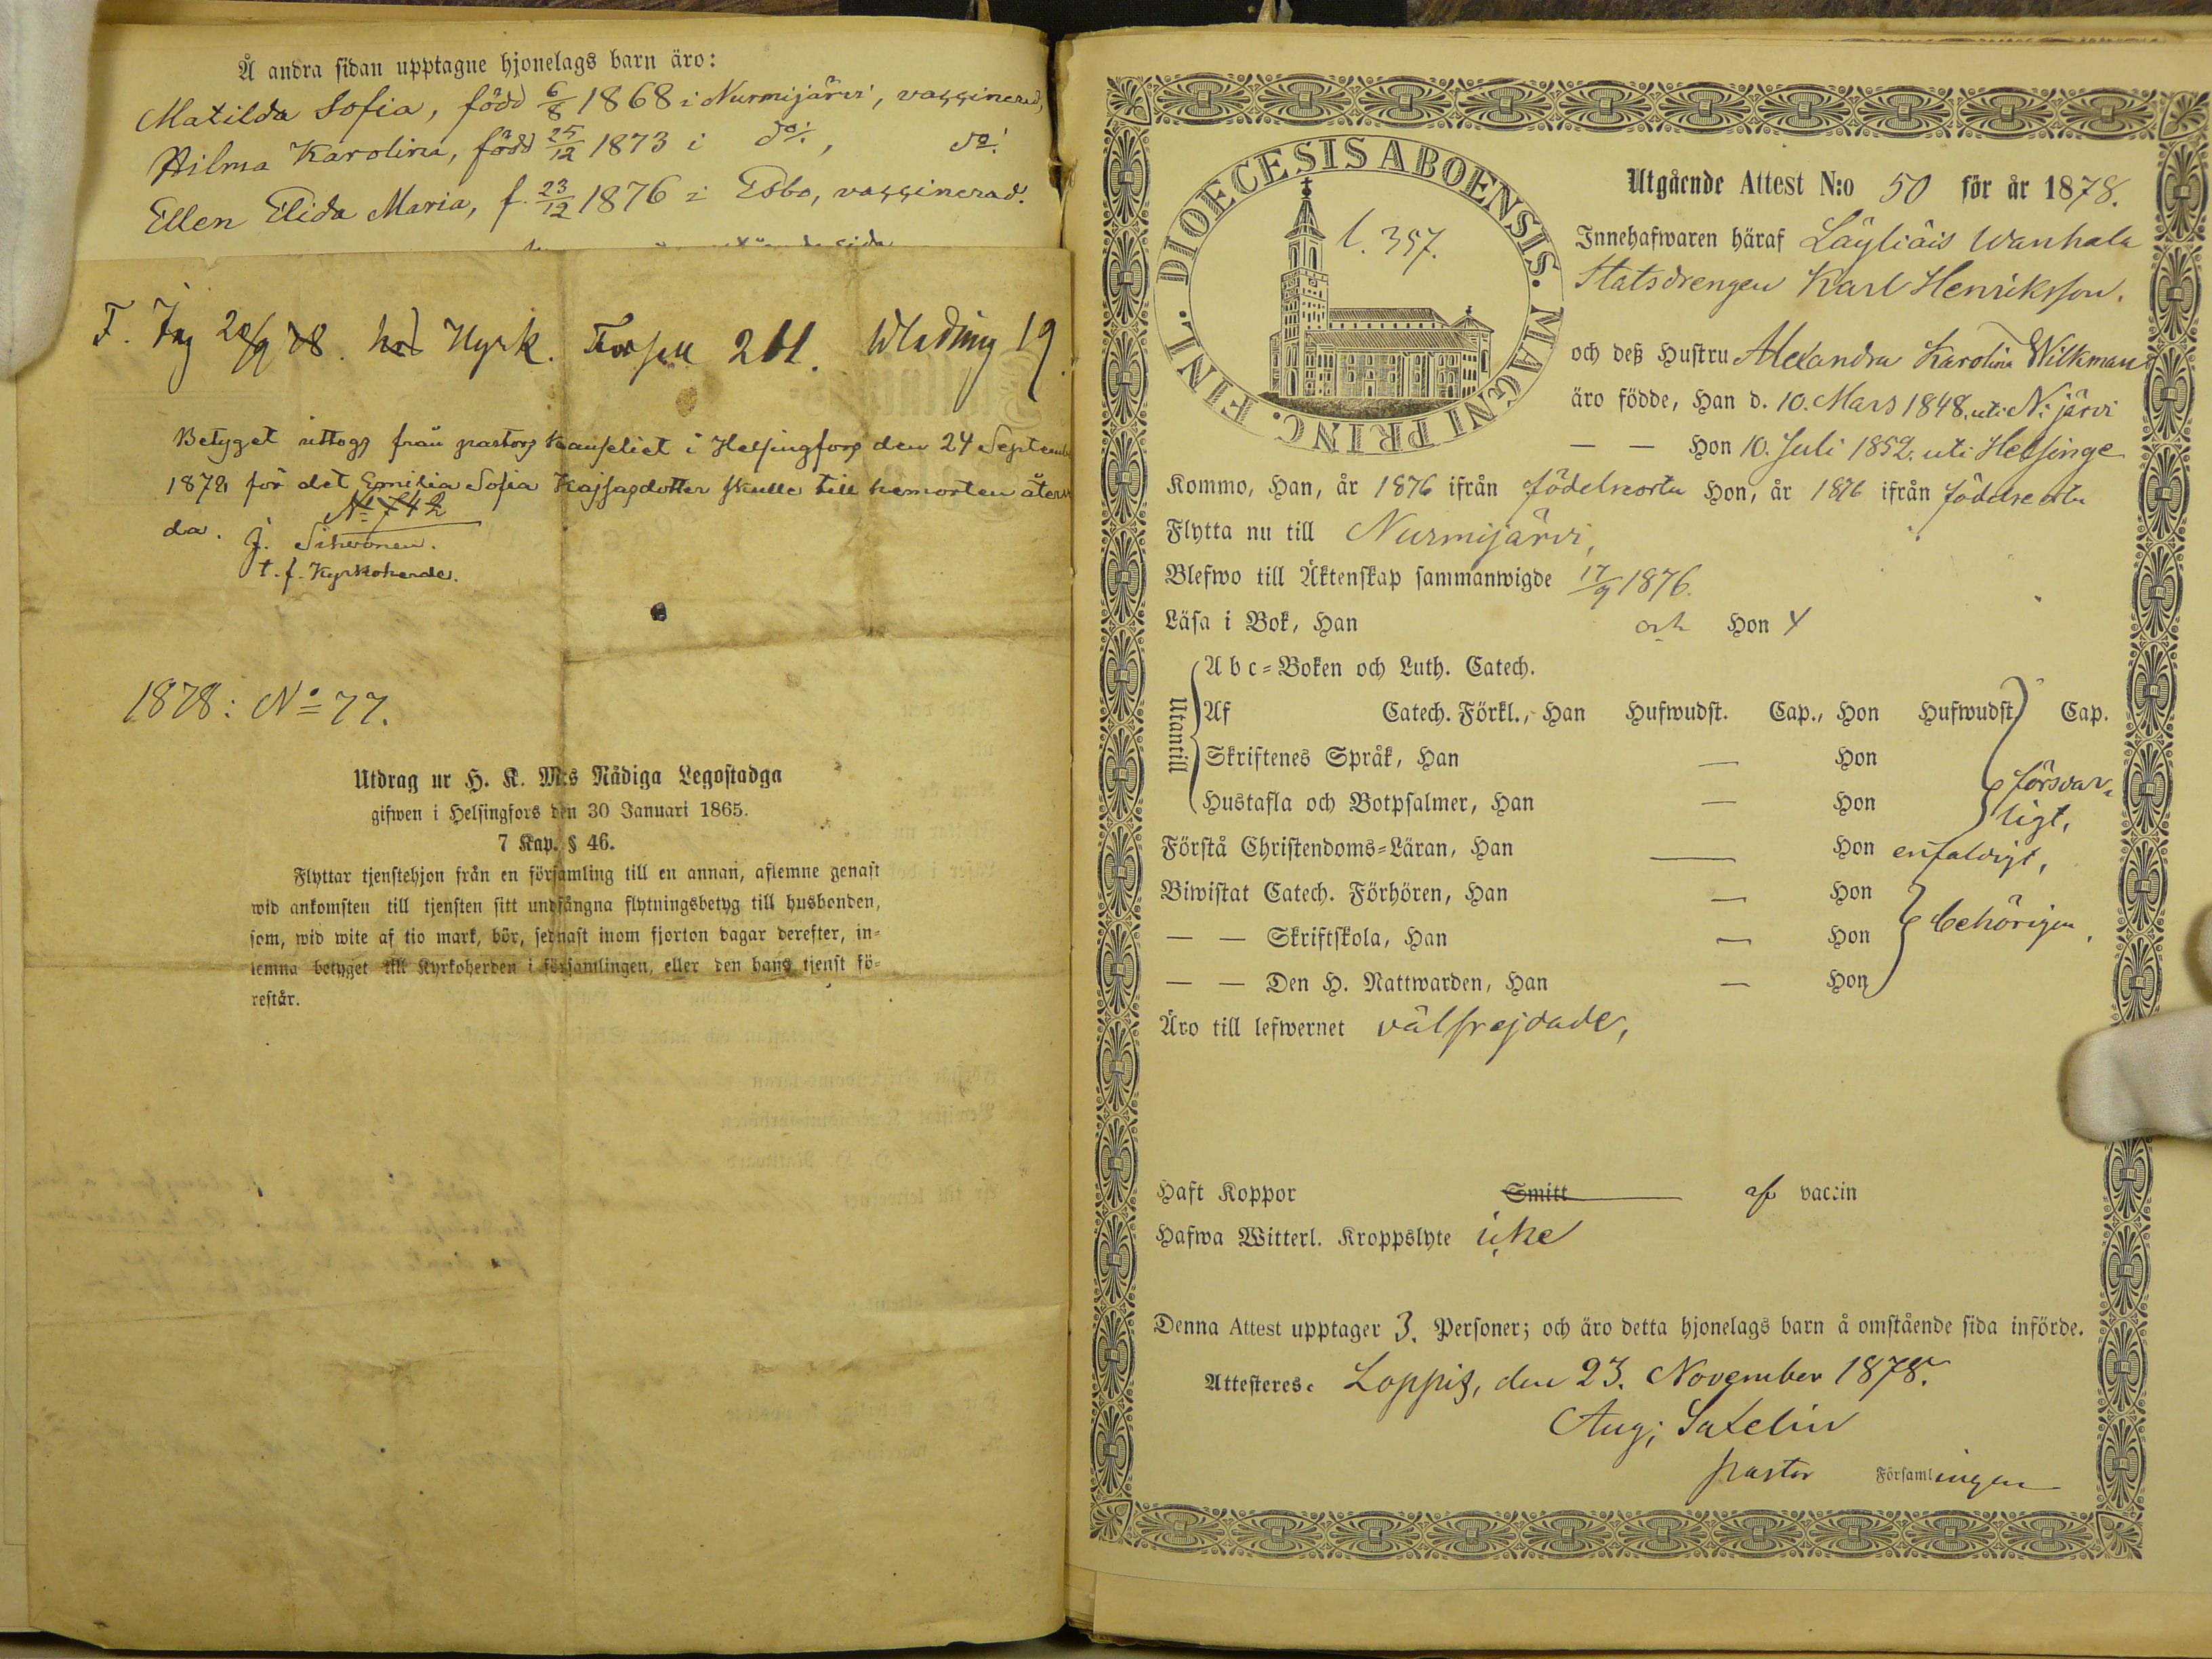 Å andra sidan upptagne hjonelags barn äro:
Matilda Sofia, född 6/8 1868 i Nurmijärvi, vaccinerad,
Hilma Karolina, född 25/12 1873 i do:, do:
Ellen Elida Maria, f. 23/12 1876 i Esbo, vaccinerad.
F. Ing 28/9 78. Nyk. 211. 19
Betyget uttogs från pastors kanseliet i Helsingfors den 24 Septemb
1878 för det Emilia Sofia Kajsasdotter skulle till hemorten återv
da. No 742
J. Sihvonen.
t. f. Kyrkoherde.
1878: No 77.
Utdrag ur H. K. M:s Nådiga Legostadga
gifwen i Helsingfors den 30 Januari 1865.
7 Kap. § 46.
Flyttar tjenstehjon från en församling till en annan, aflemne genast
wid ankomsten till tjensten sitt undfångna flytningsbetyg till husbonden,
som, wid wite af tio mark, bör, sednast inom fjorton dagar derefter, in-
lemna betyget till Kyrkoherden i församlingen, eller den hans tjenst fö-
restår.
DIOECESIS ABOENSIS. MAGNI PRINC. FINL.
l. 357.
Utgående Attest N:o 50 för år 1878.
Innehafwaren häraf Läyliäis Wanhala
Statsdrengen Karl Henriksson.
och deß Hustru Alexandra Karolina Wilkman
äro födde, Han d. 10. Mars 1848. uti N:järvi
— — Hon 10. Juli 1852. uti Helsinge
Kommo, Han, år 1876 ifrån födelseorten Hon, år 1876 ifrån födelseorten
Flytta nu till Nurmijärvi,
Blefwo till Äktenskap sammanwigde 17/9 1876.
Läsa i Bok, Han och Hon
Utantill
A b c-Boken och Luth. Catech.
Af Catech. Förkl., Han Hufwudst. Cap., Hon Hufwudst. Cap.
Skriftenes Språk, Han — Hon
Hustafla och Botpsalmer, Han — Hon
försvar-
ligt,
Förstå Christendoms-Läran, Han — Hon enfaldigt,
Biwistat Catech. Förhören, Han — Hon
— — Skriftskola, Han — Hon behörigen,
— — Den H. Nattwarden, Han — Hon
Äro till lefwernet välfrejdade,
Haft Koppor Smitt af vaccin
Hafwa Witterl. Kroppslyte icke
Denna Attest upptager 3. Personer; och äro detta hjonelags barn å omstående sida införde.
Attesteres. Loppis, den 23. November 1878.
Aug;
pastor Församlingen